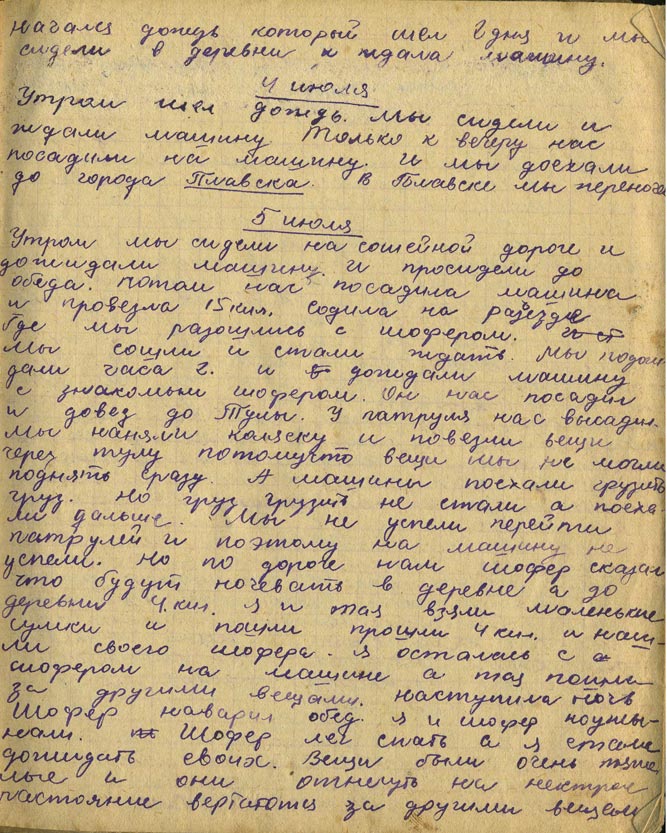 начался дождь который шел 2 дня и мы
сидели в деревни и ждала машину.
4 июля
Утром шел дождь. Мы сидели и
ждали машину Только к вечеру нас
посадили на машину. И мы доехали
до города Плавска. В Плавске мы переноч
5 июля
Утром мы сидели на сошейной дороге и
дожидали машину. И просидели до
обеда. Потом нас посадила машина
и провезла 15 кил. Содила на разъезде
где мы разошлись с шофером.
Мы сошли и стали ждать. Мы подож
дали часа 2. и дождали машину
с знакомым шофером. Он нас посадил
и довед до Тулы. У патруля нас высадил.
Мы наняли каляску и повезли вещи
через тулу потомусто вещи мы не могли
поднять сразу. А машины поехали грузить
груз. Но груз грузить не стали а поеха
ли дальше. Мы не успели перейти
патрулей и поэтому на машину не
успели. Но по дороге нам шофер сказал
что будут ночевать в деревне а до
деревни 4 кил. Я и таз взяли маленькие
сумки и пошли прошли 4 кил. и наш-
ли своего шофера. Я осталась с
шофером на машине а таз пошли
за другими вещами. наступила ночь
Шофер наварил обед. Я и шофер поужи-
нали. Шофер лег спать а я стала
дожидать своих. Вещи были очень тяже
лые и они отнесуть на некторое
растояние вертаютца за другими вещами